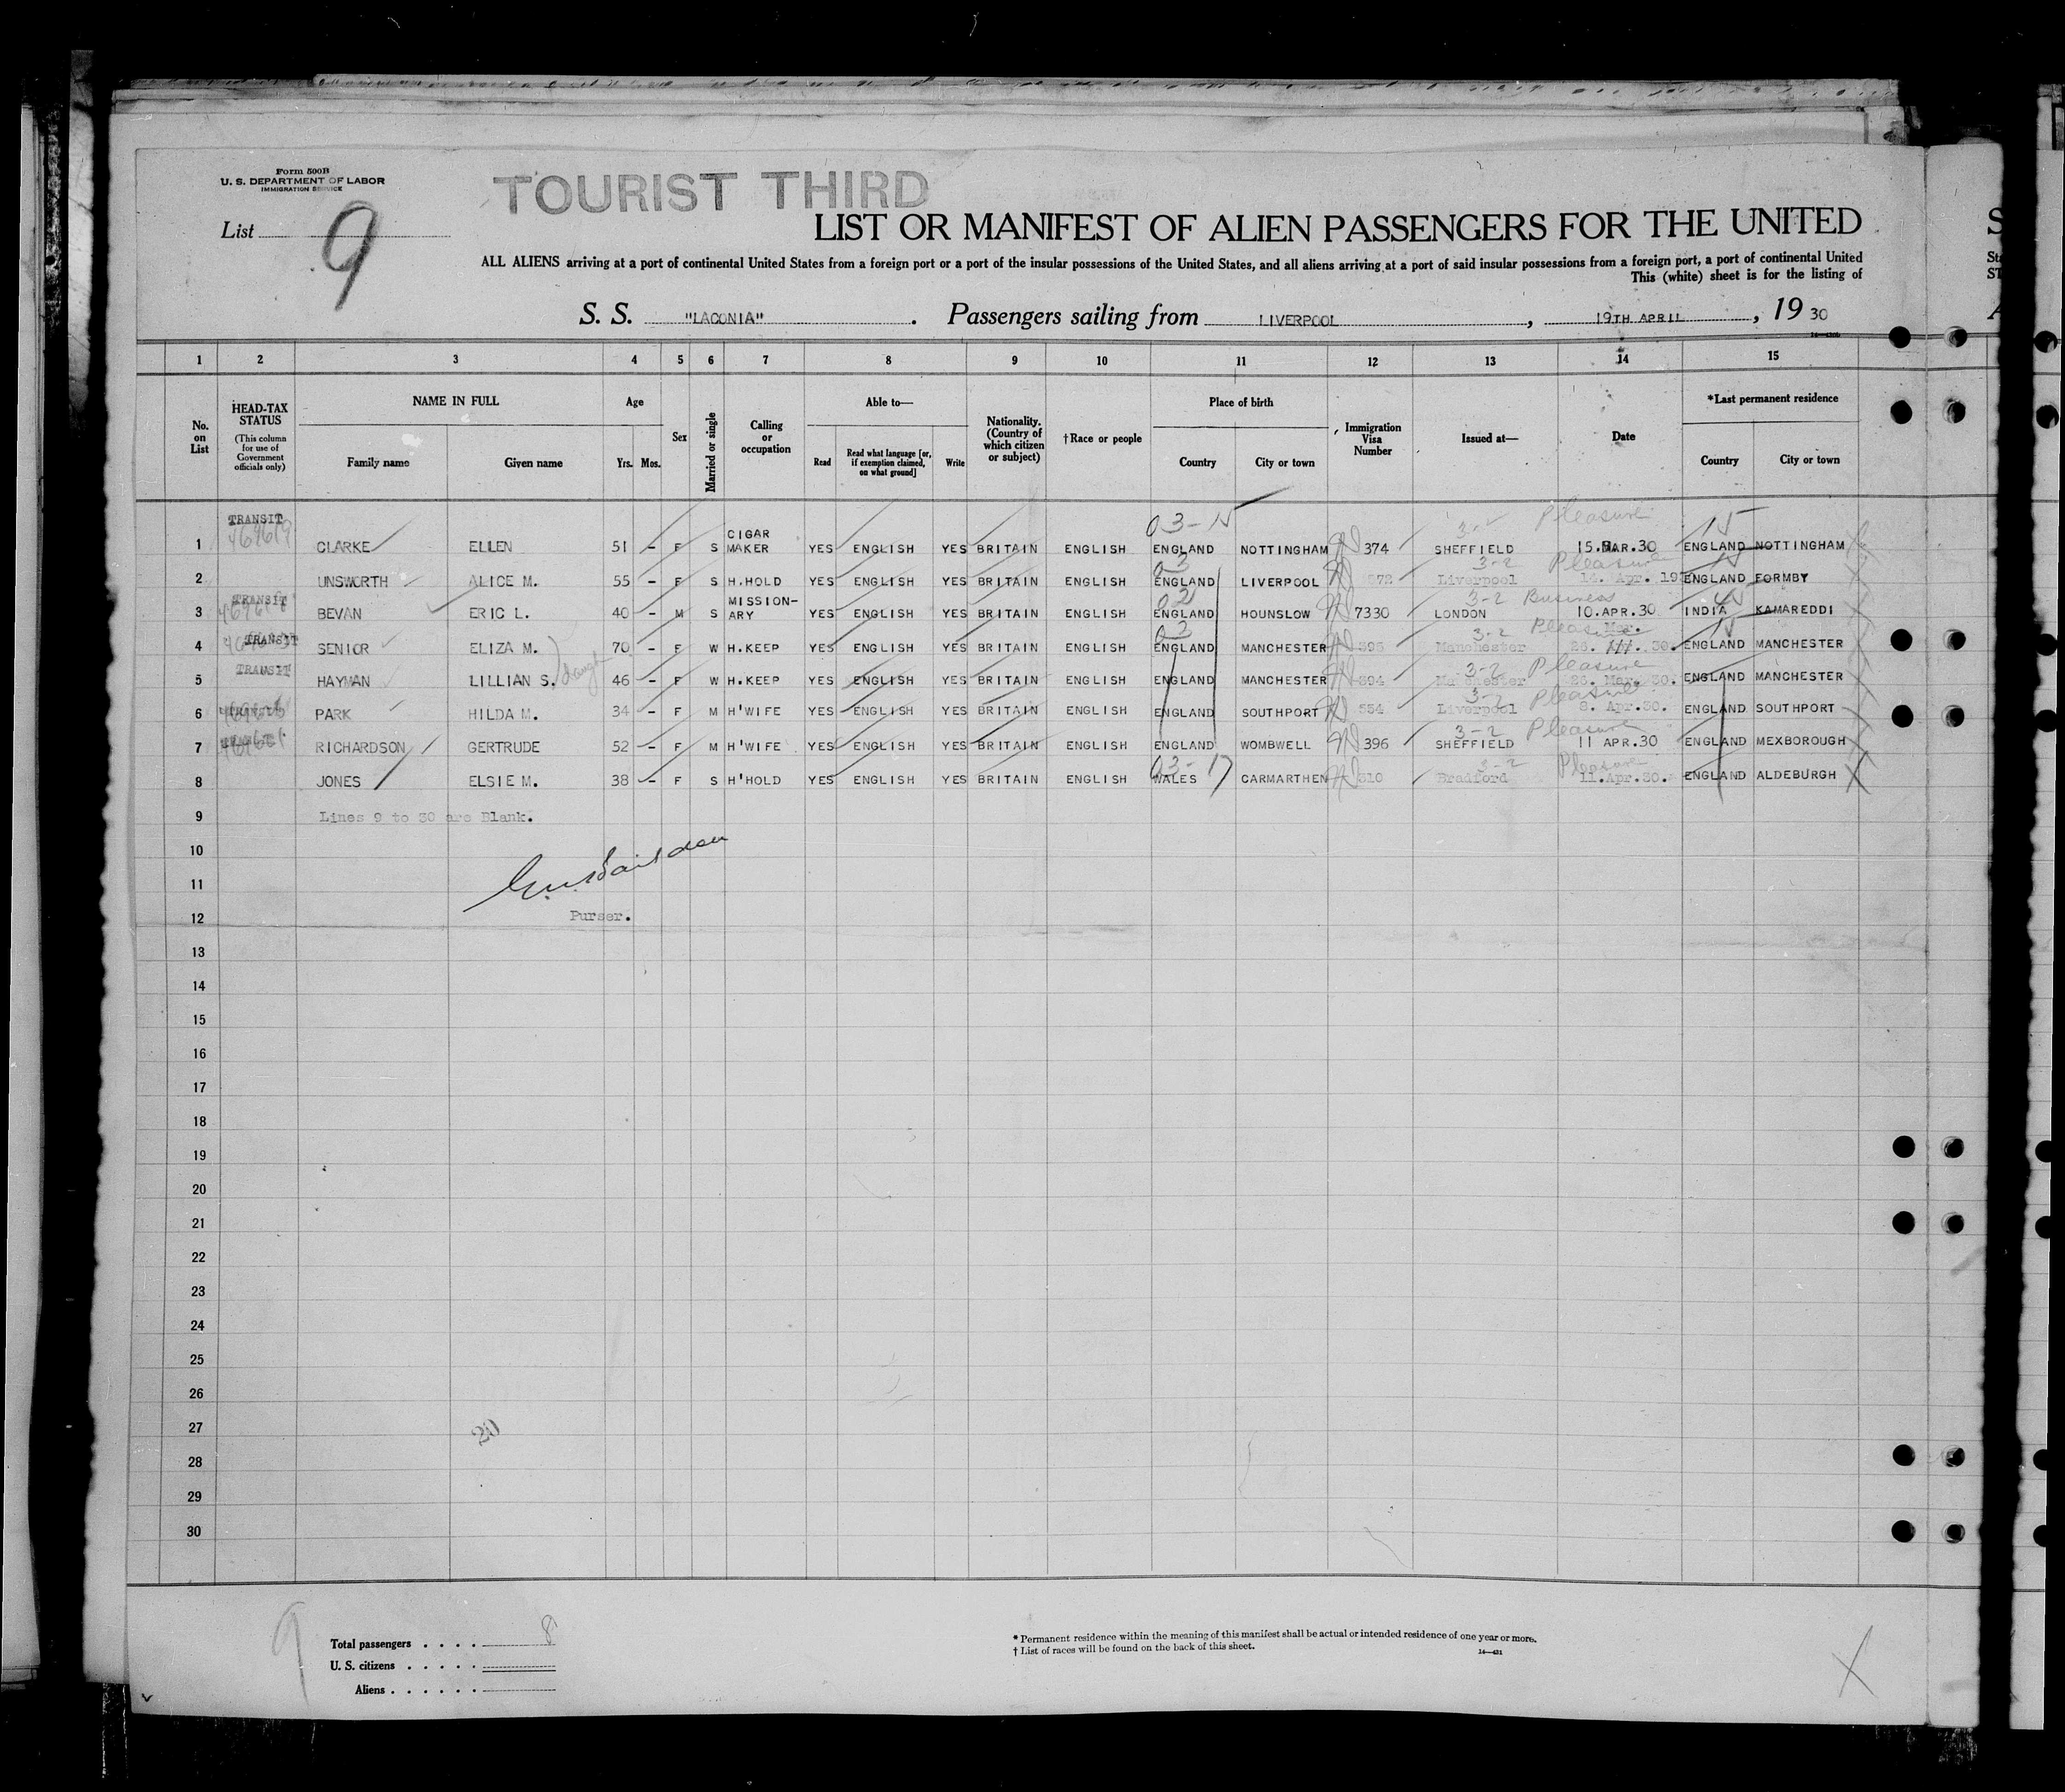 Form 500B
U. S. DEPARTMENT OF LABOR
IMMIGRATION SERVICE
TOURIST THIRD
List 9
LIST OR MANIFEST OF ALIEN PASSENGERS FOR THE UNITED
ALL ALIENS arriving at a port of continental United States from a foreign port or a port of the insular possessions of the United States, and all aliens arriving at a port of said insular possessions from a foreign port, a port of continental United
This (white) sheet is for the listing of
S. S. "LACONIA". Passengers sailing from LIVERPOOL, 19TH APRIL, 19 30
1 2 3 4 5 6 7 8 9 10 11 12 13 14 15
No. on List
HEAD-TAX STATUS
(This column for use of Government officials only)
NAME IN FULL
Family name Given name
Age
Yrs. Mos.
Sex
Married or single
Calling or occupation
Able to—
Read
Read what language [or, if exemption claimed, on what ground]
Write
Nationality. (Country of which citizen or subject)
†Race or people
Place of birth
Country City or town
Immigration Visa Number
Issued at—
Date
*Last permanent residence
Country City or town
03-15 Pleasure 15
1 TRANSIT CLARKE ELLEN 51 – F S CIGAR MAKER YES ENGLISH YES BRITAIN ENGLISH ENGLAND NOTTINGHAM 374 SHEFFIELD 15.MAR.30 ENGLAND NOTTINGHAM
03 3-2 Pleasure
2 UNSWORTH ALICE M. 55 – F S H.HOLD YES ENGLISH YES BRITAIN ENGLISH ENGLAND LIVERPOOL 572 Liverpool 14. Apr. 19 ENGLAND FORMBY
3-2 Business
3 TRANSIT BEVAN ERIC L. 40 – M S MISSION-ARY YES ENGLISH YES BRITAIN ENGLISH ENGLAND HOUNSLOW 7330 LONDON 10.APR.30 INDIA KAMAREDDI
03 3-2 Mar.
4 TRANSIT SENIOR ELIZA M. 70 – F W H.KEEP YES ENGLISH YES BRITAIN ENGLISH ENGLAND MANCHESTER 395 Manchester 26. 30. ENGLAND MANCHESTER
3-2 Pleasure
5 TRANSIT HAYMAN LILLIAN S. 46 – F W H.KEEP YES ENGLISH YES BRITAIN ENGLISH ENGLAND MANCHESTER 394 Manchester 26. Mar. 30. ENGLAND MANCHESTER
3-2 Pleasure
6 TRANSIT PARK HILDA M. 34 – F M H'WIFE YES ENGLISH YES BRITAIN ENGLISH ENGLAND SOUTHPORT 554 Liverpool 8. Apr.30. ENGLAND SOUTHPORT
3-2 Pleasure
7 TRANSIT RICHARDSON GERTRUDE 52 – F M H'WIFE YES ENGLISH YES BRITAIN ENGLISH ENGLAND WOMBWELL 396 SHEFFIELD 11 APR.30 ENGLAND MEXBOROUGH
03-17 3-2 Pleasure
8 JONES ELSIE M. 38 – F S H'HOLD YES ENGLISH YES BRITAIN ENGLISH WALES CARMARTHEN 310 Bradford 11.Apr.30. ENGLAND ALDEBURGH
9 Lines 9 to 30 are Blank.
10
11
12 Purser.
13
14
15
16
17
18
19
20
21
22
23
24
25
26
27
28
29
30
20
9
Total passengers . . . . 8
U. S. citizens . . . . .
Aliens . . . . . .
* Permanent residence within the meaning of this manifest shall be actual or intended residence of one year or more.
† List of races will be found on the back of this sheet.